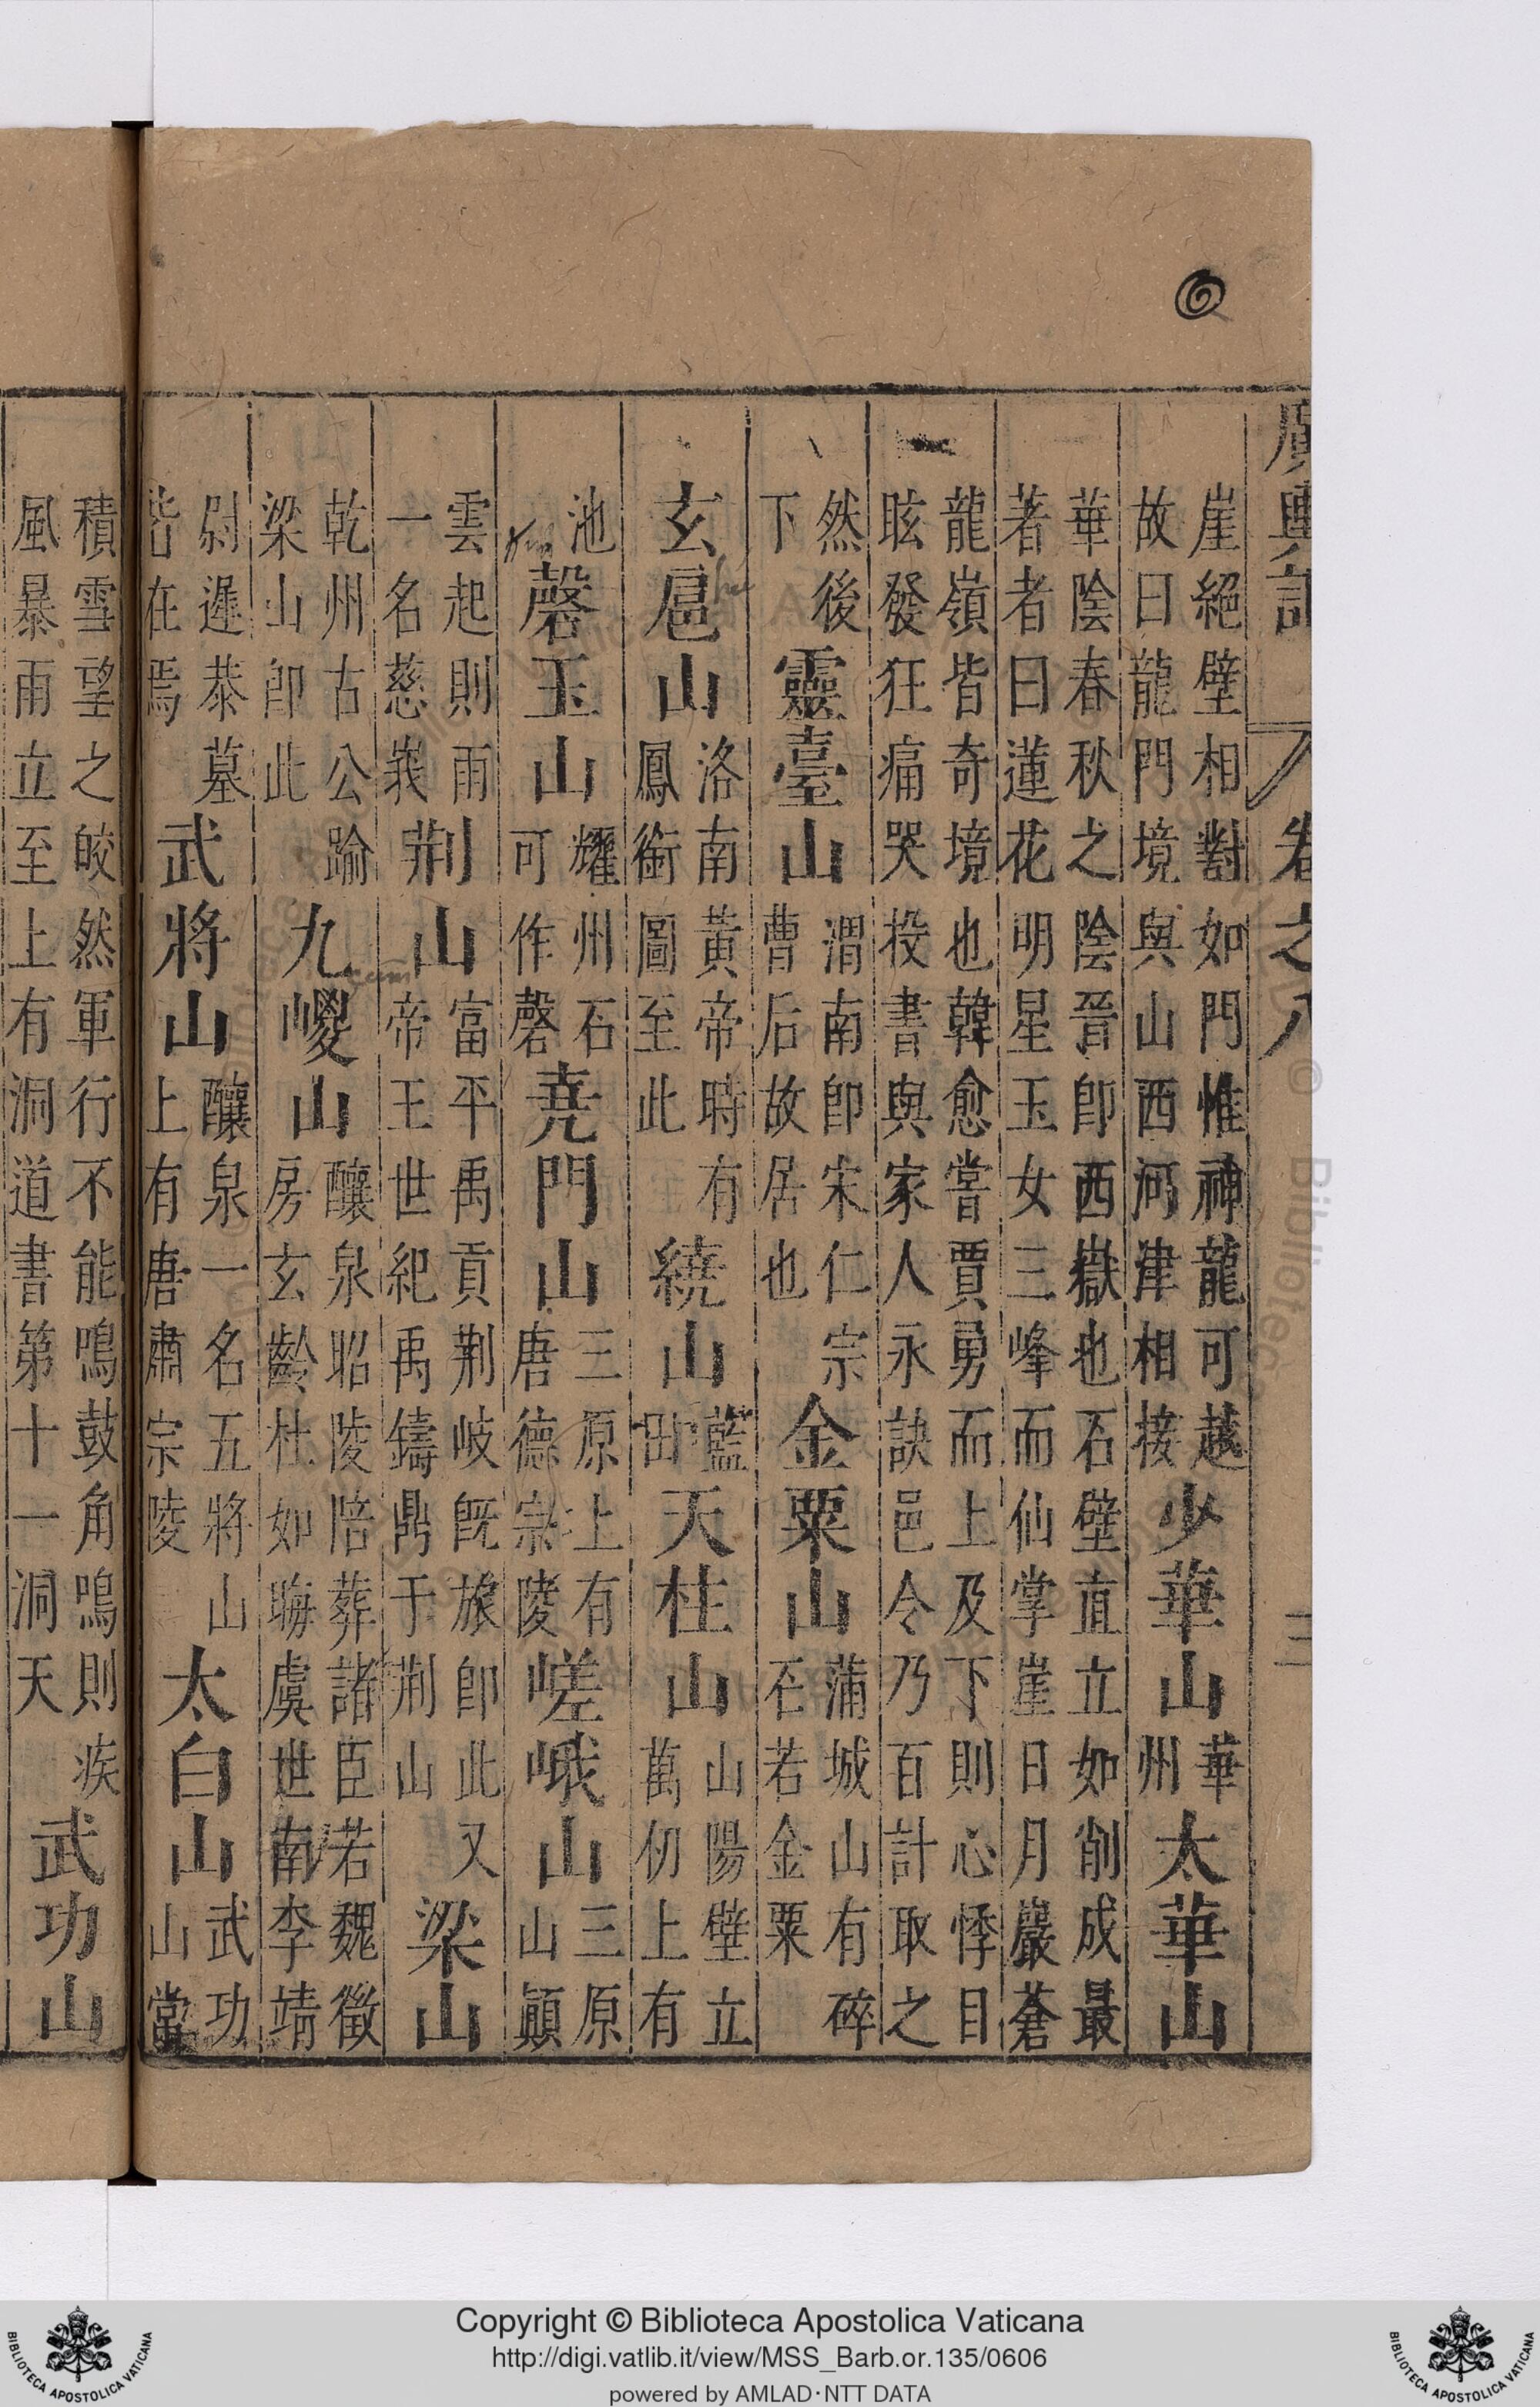 廣輿記 卷之八 三
崖絕壁相對如門惟神龍可越
故曰龍門境與山西河津相接
少華山
華
州
太華山
華陰春秋之陰晉即西嶽也石壁直立如削成最
著者曰蓮花明星玉女三峰而仙掌崖日月巖蒼
龍嶺皆奇境也韓愈嘗賈勇而上及下則心悸目
眩發狂痛哭投書與家人永訣邑令乃百計取之
然後
下
靈臺山
渭南即宋仁宗
曹后故居也
金粟山
蒲城山有碎
石若金粟
玄扈山
洛南黃帝時有
鳳銜圖至此
繞山
藍
田
天柱山
山陽壁立
萬仞上有
池
磬玉山
耀州石
可作磬
堯門山
三原上有
唐德宗陵
嵯峨山
三原
山顛
雲起則雨
一名慈峩
荆山
富平禹貢荆岐旣旅即此又
帝王世紀禹鑄鼎于荆山
梁山
乾州古公踰
梁山即此
九嵕山
醸泉昭陵陪葬諸臣若魏徵
房玄齡杜如晦虞世南李靖
尉遲恭墓
皆在焉
武將山
醸泉一名五將山
上有唐肅宗陵
太白山
武功
山當
積雪望之皎然軍行不能鳴鼓角鳴則疾
風暴雨立至上有洞道書第十一洞天
武功山
Copyright © Biblioteca Apostolica Vaticana
http://digi.vatlib.it/view/MSS_Barb.or.135/0606
powered by AMLAD·NTT DATA
BIBLIOTECA APOSTOLICA VATICANA
BIBLIOTECA APOSTOLICA VATICANA